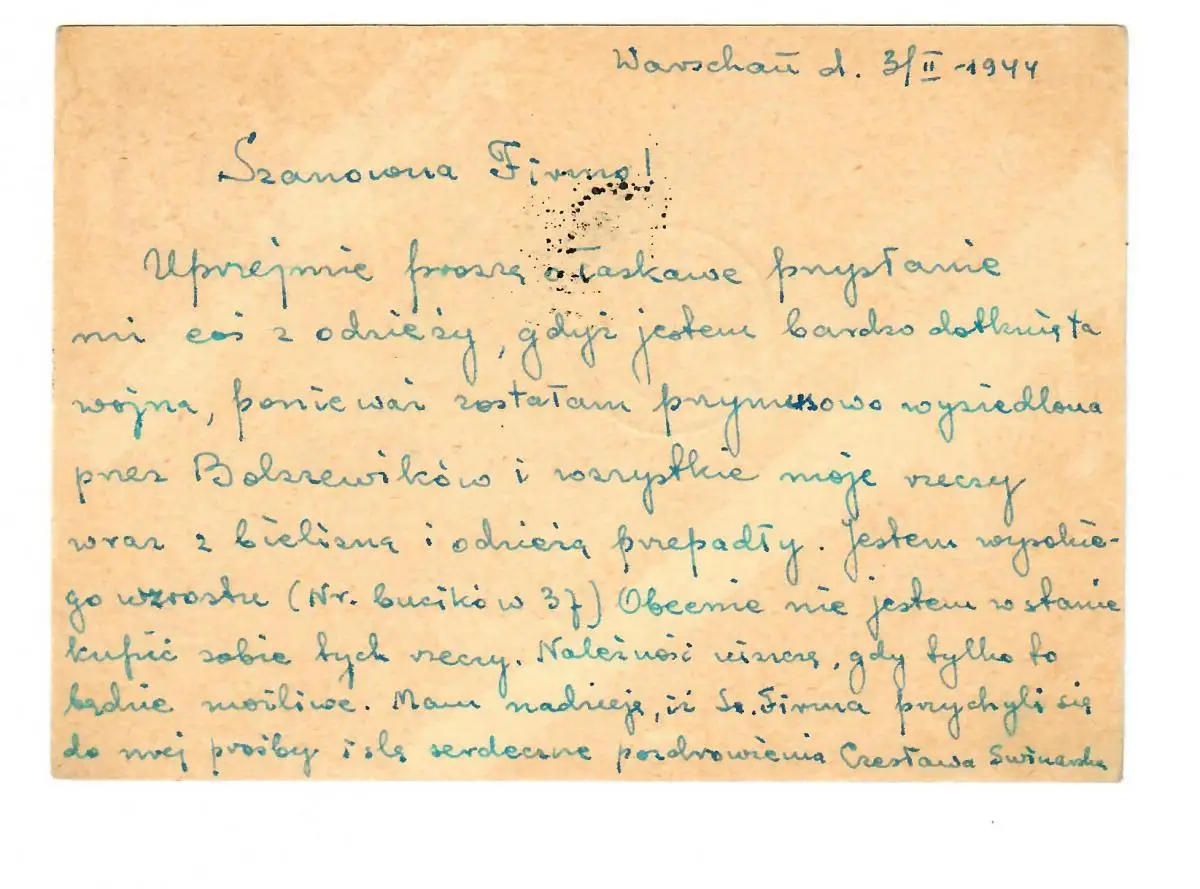 Warschau d. 3/II -1944
Szanowna Firmo!
Uprzejmie proszę o łaskawe przysłanie
mi coś z odzieży, gdyż jestem bardzo dotknięta
wojną, ponieważ zostałam przymusowo wysiedlona
przez Bolszewików i wszystkie moje rzeczy
wraz z bielizną i odzieżą przepadły. Jestem wysokie-
go wzrostu (Nr. bucików 37) Obecnie nie jestem w stanie
kupić sobie tych rzeczy. Należność uiszczę, gdy tylko to
będzie możliwe. Mam nadzieję, iż Sz. Firma przychyli się
do mej prośby i ślę serdeczne pozdrowienia Czesława Swinarska